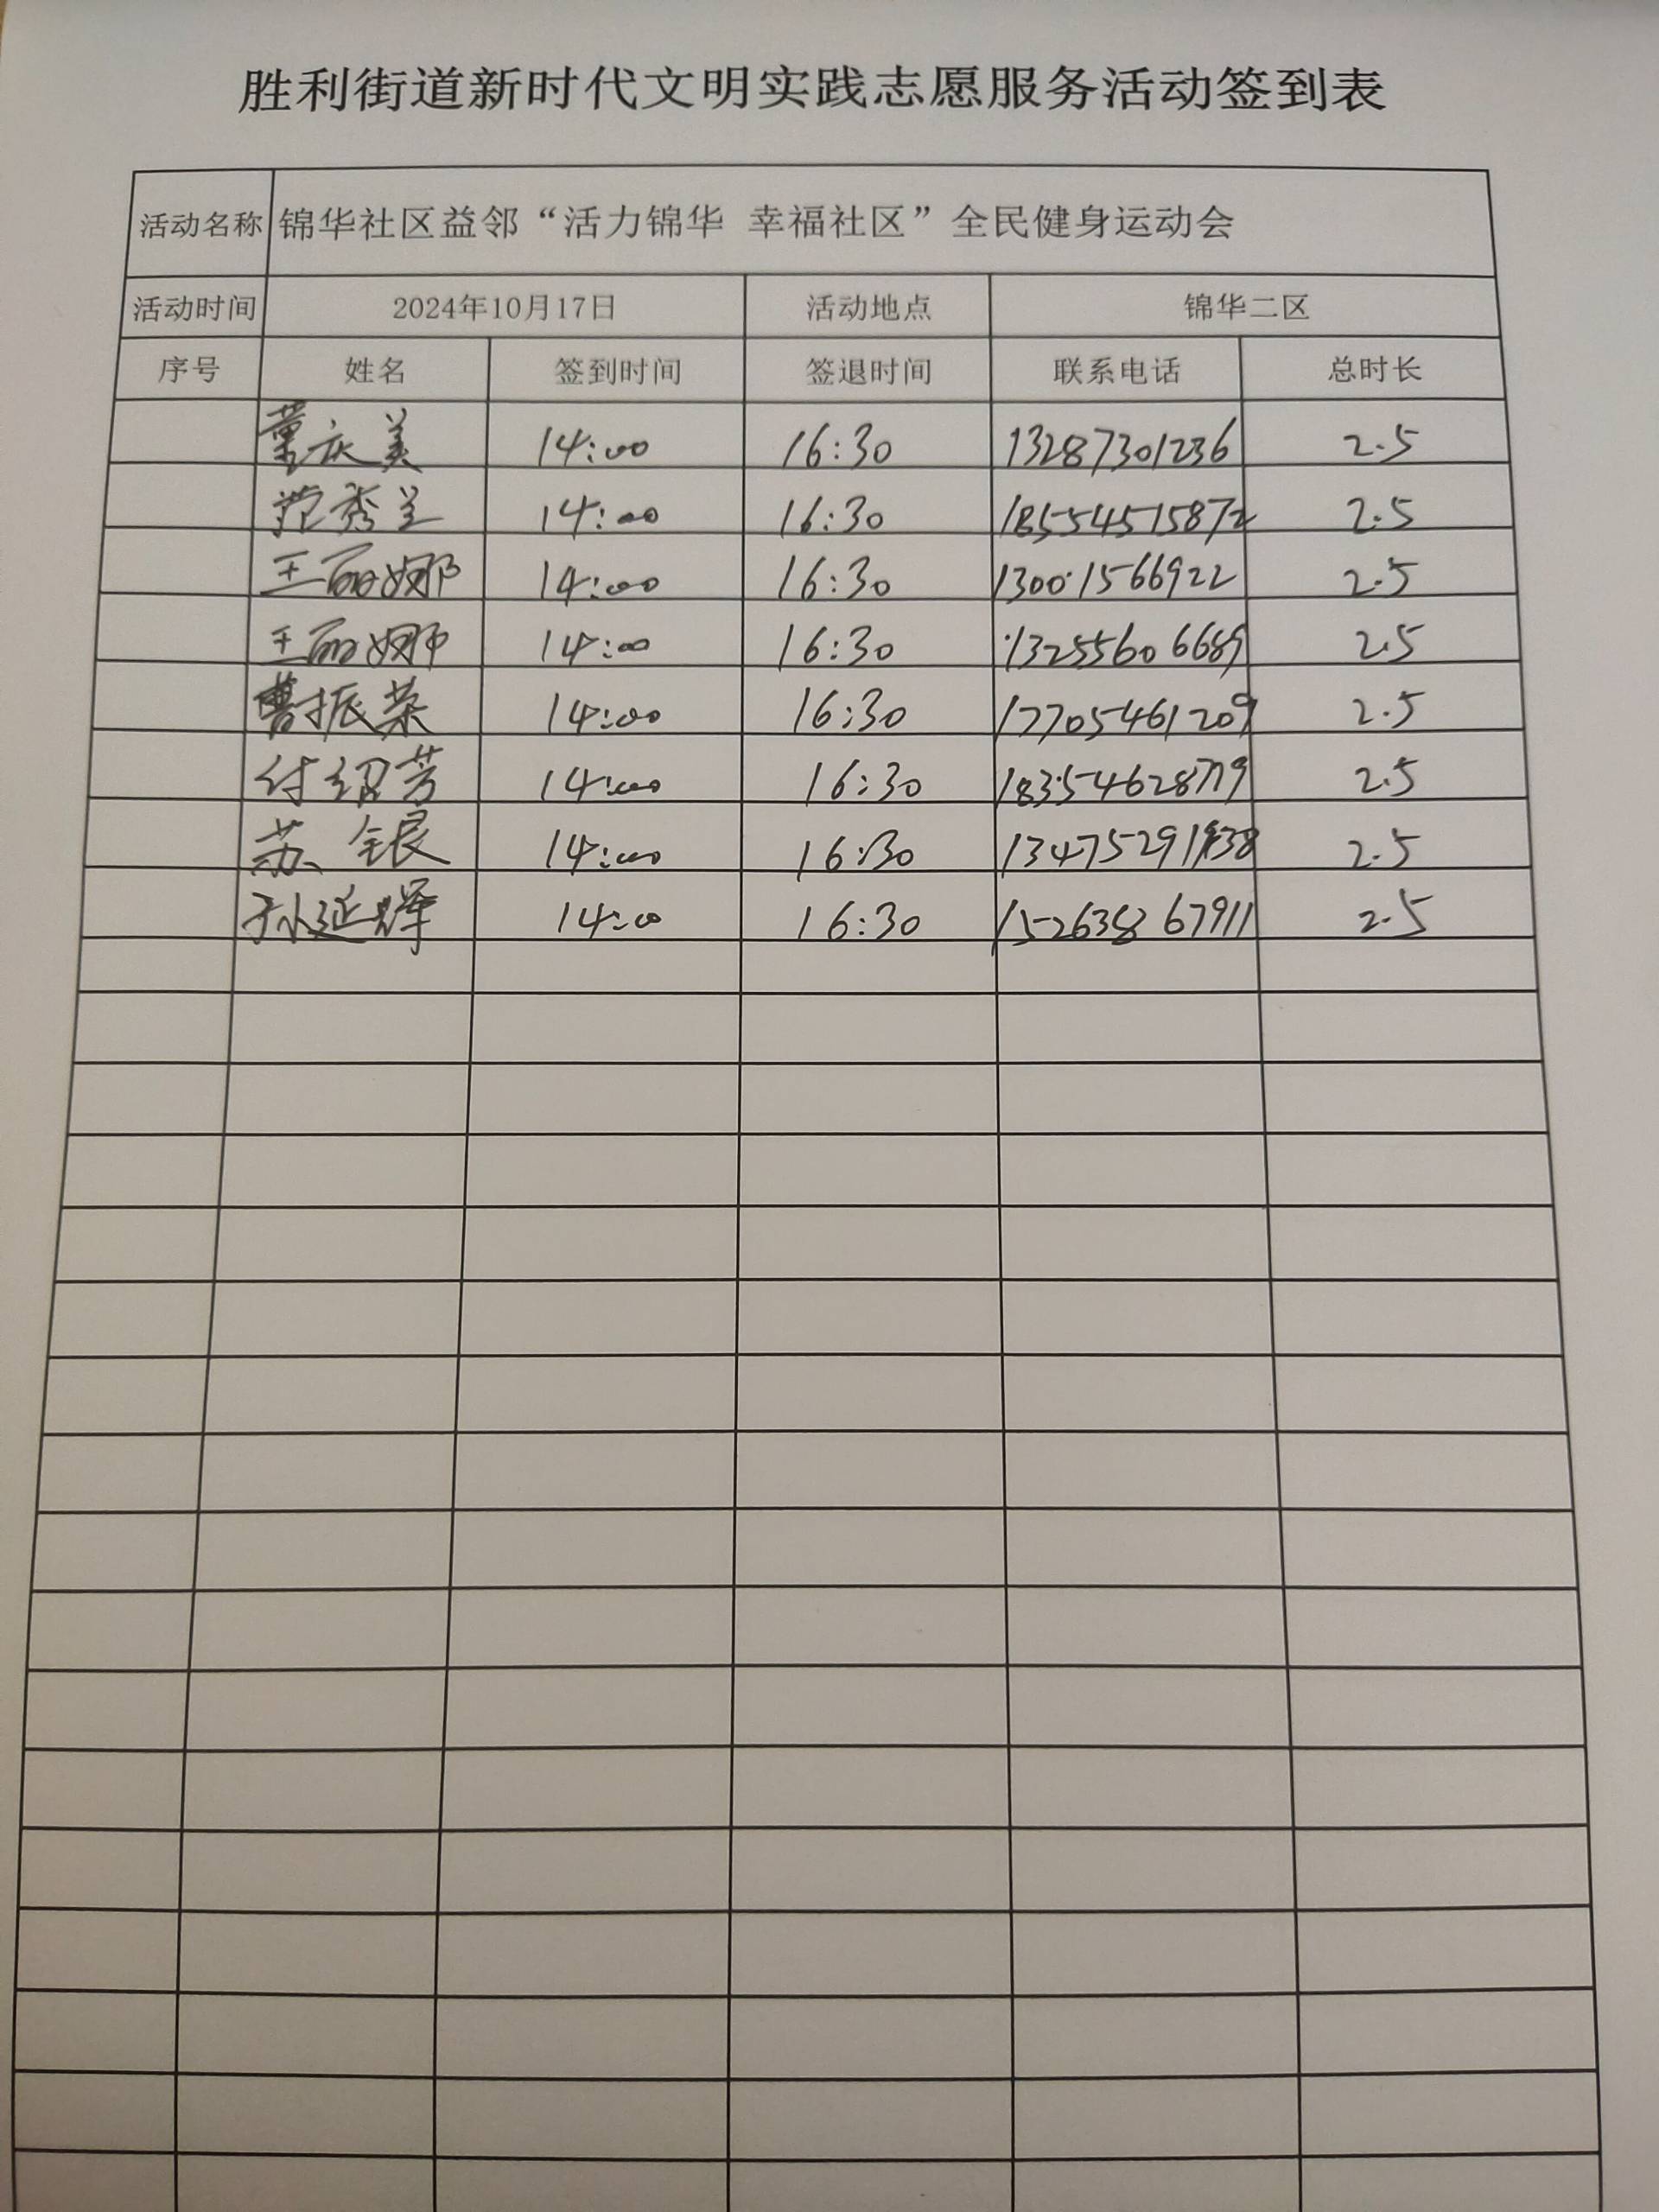 胜利街道新时代文明实践志愿服务活动签到表
活动名称 锦华社区益邻“活力锦华 幸福社区”全民健身运动会
活动时间 2024年10月17日 活动地点 锦华二区
序号 姓名 签到时间 签退时间 联系电话 总时长
董庆美 14:00 16:30 13287301236 2.5
范秀兰 14:00 16:30 18554515872 2.5
王丽娜 14:00 16:30 13001566922 2.5
王丽娜 14:00 16:30 13255606689 2.5
曹振荣 14:00 16:30 17705461209 2.5
付绍芳 14:00 16:30 18354628779 2.5
苏银 14:00 16:30 2.5
孙延辉 14:00 16:30 2.5